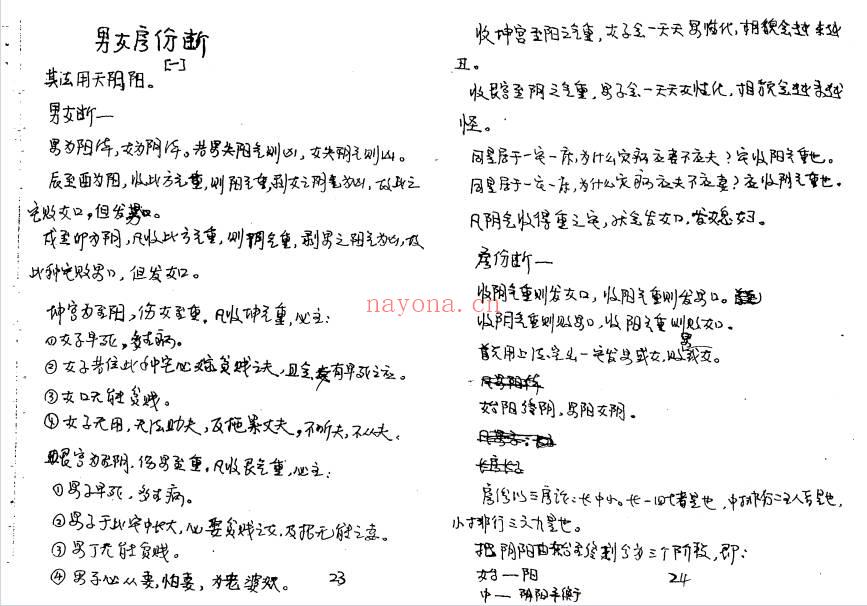 男女房份断
[一]
其法用天阳阳。
男女断一
男为阳体，女为阴体。若男失阳气则凶，女失阴气则凶。
辰至酉为阳，收此方气重，则阳气重，剥女之阴气为凶，故此之
宅败女口，但发男口。
戌至卯为阴，凡收此方气重，则阴气重，剥男之阳气为凶，故
此种宅败男口，但发女口。
坤宫为至阳，伤女至重，凡收坤气重，必主：
①女子早死，多病。
②女子若住此种宅必嫁贫贱之夫，且会有早死之应。
③女口无能贫贱。
④女子无用，无法助夫，反拖累丈夫，不听夫，不从夫。
艮宫为至阴，伤男至重，凡收艮气重，必主：
①男子早死，多病。
②男子于此宅中长大，必娶贫贱之女，及招无能之应。
③男丁无能贫贱。
④男子必从妻，怕妻，为老婆奴。
23
收坤宫至阳之气重，女子会一天天男性化，相貌会越来越
丑。
收艮宫至阴之气重，男子会一天天女性化，相貌会越来越
怪。
同是居于一宅一床，为什么灾病应妻不应夫？定收阳气重也。
同是居于一宅一床，为什么灾病应夫不应妻？应收阴气重也。
凡阴气收得重之宅，状会发女口，发媳妇。
房份断一
收阴气重则发女口，收阳气重则发男口。
收阴气重则败男口，收阳气重则败女口。
首先用上法定出一宅发男或女，败男或女。
始阳终阴，男阳女阴。
长房长子
房份以三房论：长中小。长一四七者是也，中排行二五八者是也，
小排行三六九是也。
把阴阳由始至终划分为三个阶段，即：
始一阳
24
中一阴阳平衡
nayona.cn